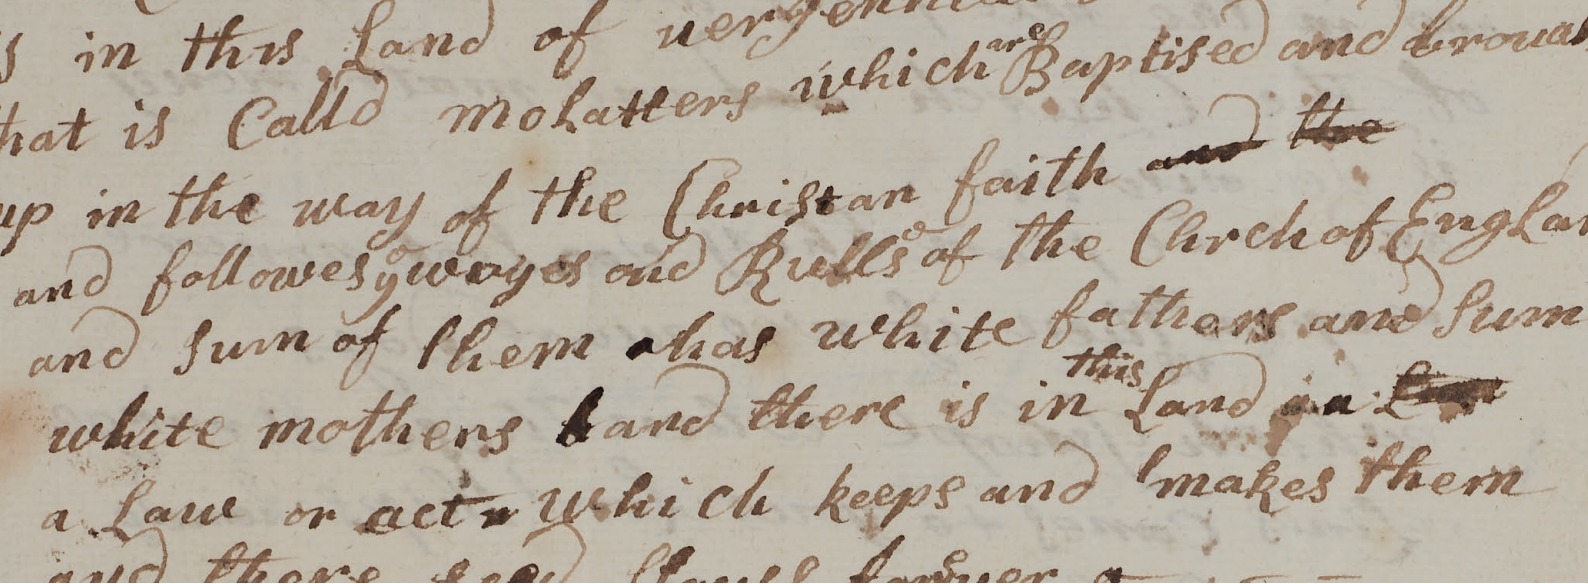 in this Land of vergennia
that is Calld molatters which are Baptised and brouat
up in the way of the Christan faith and the
and followes ye wayes and Rulles of the Chrch of England
and sum of them has white fathers and sum
white mothers and there is in this Land
a Law or act which keeps and makes them
and there seed Slaves forever